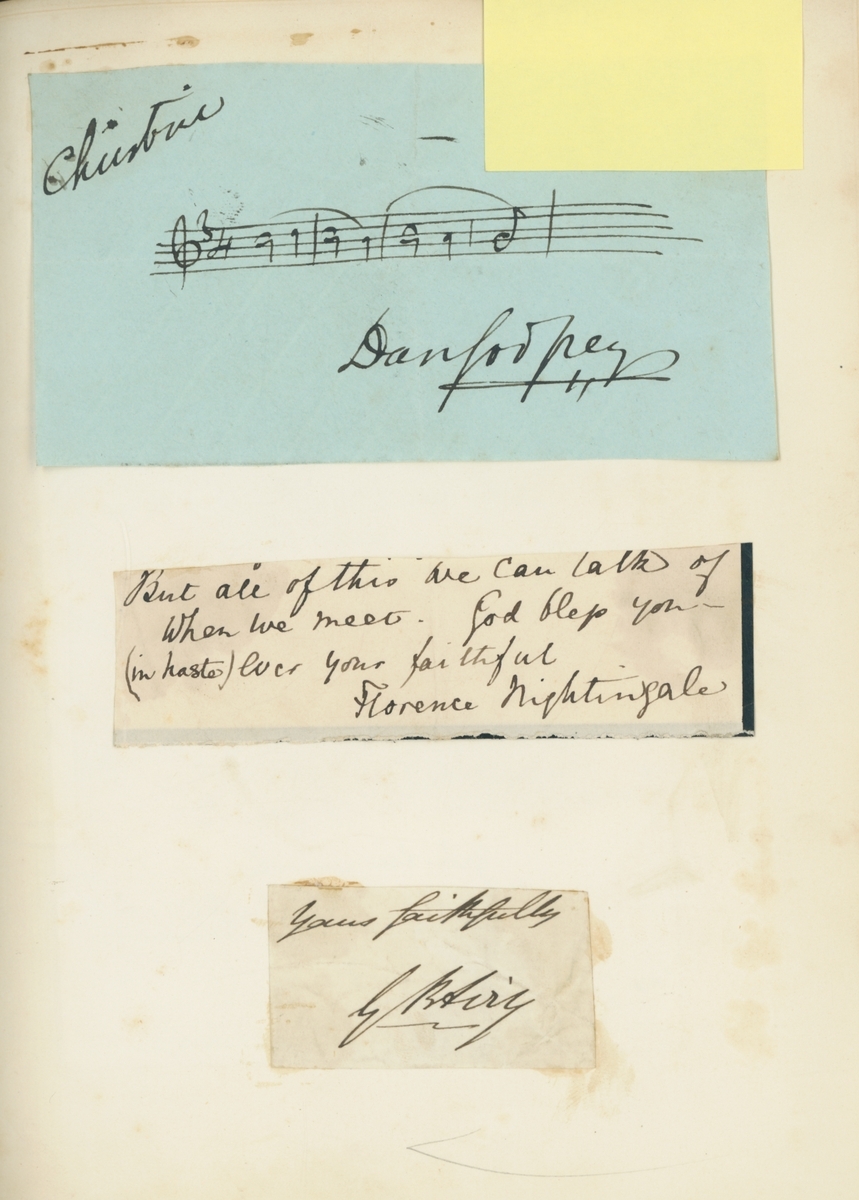 Christine
3
4
Dan Godfrey
But all of this we can talk of
When we meet. God bless you –
(in haste) ever your faithful
Florence Nightingale
Yours faithfully
G B Airy